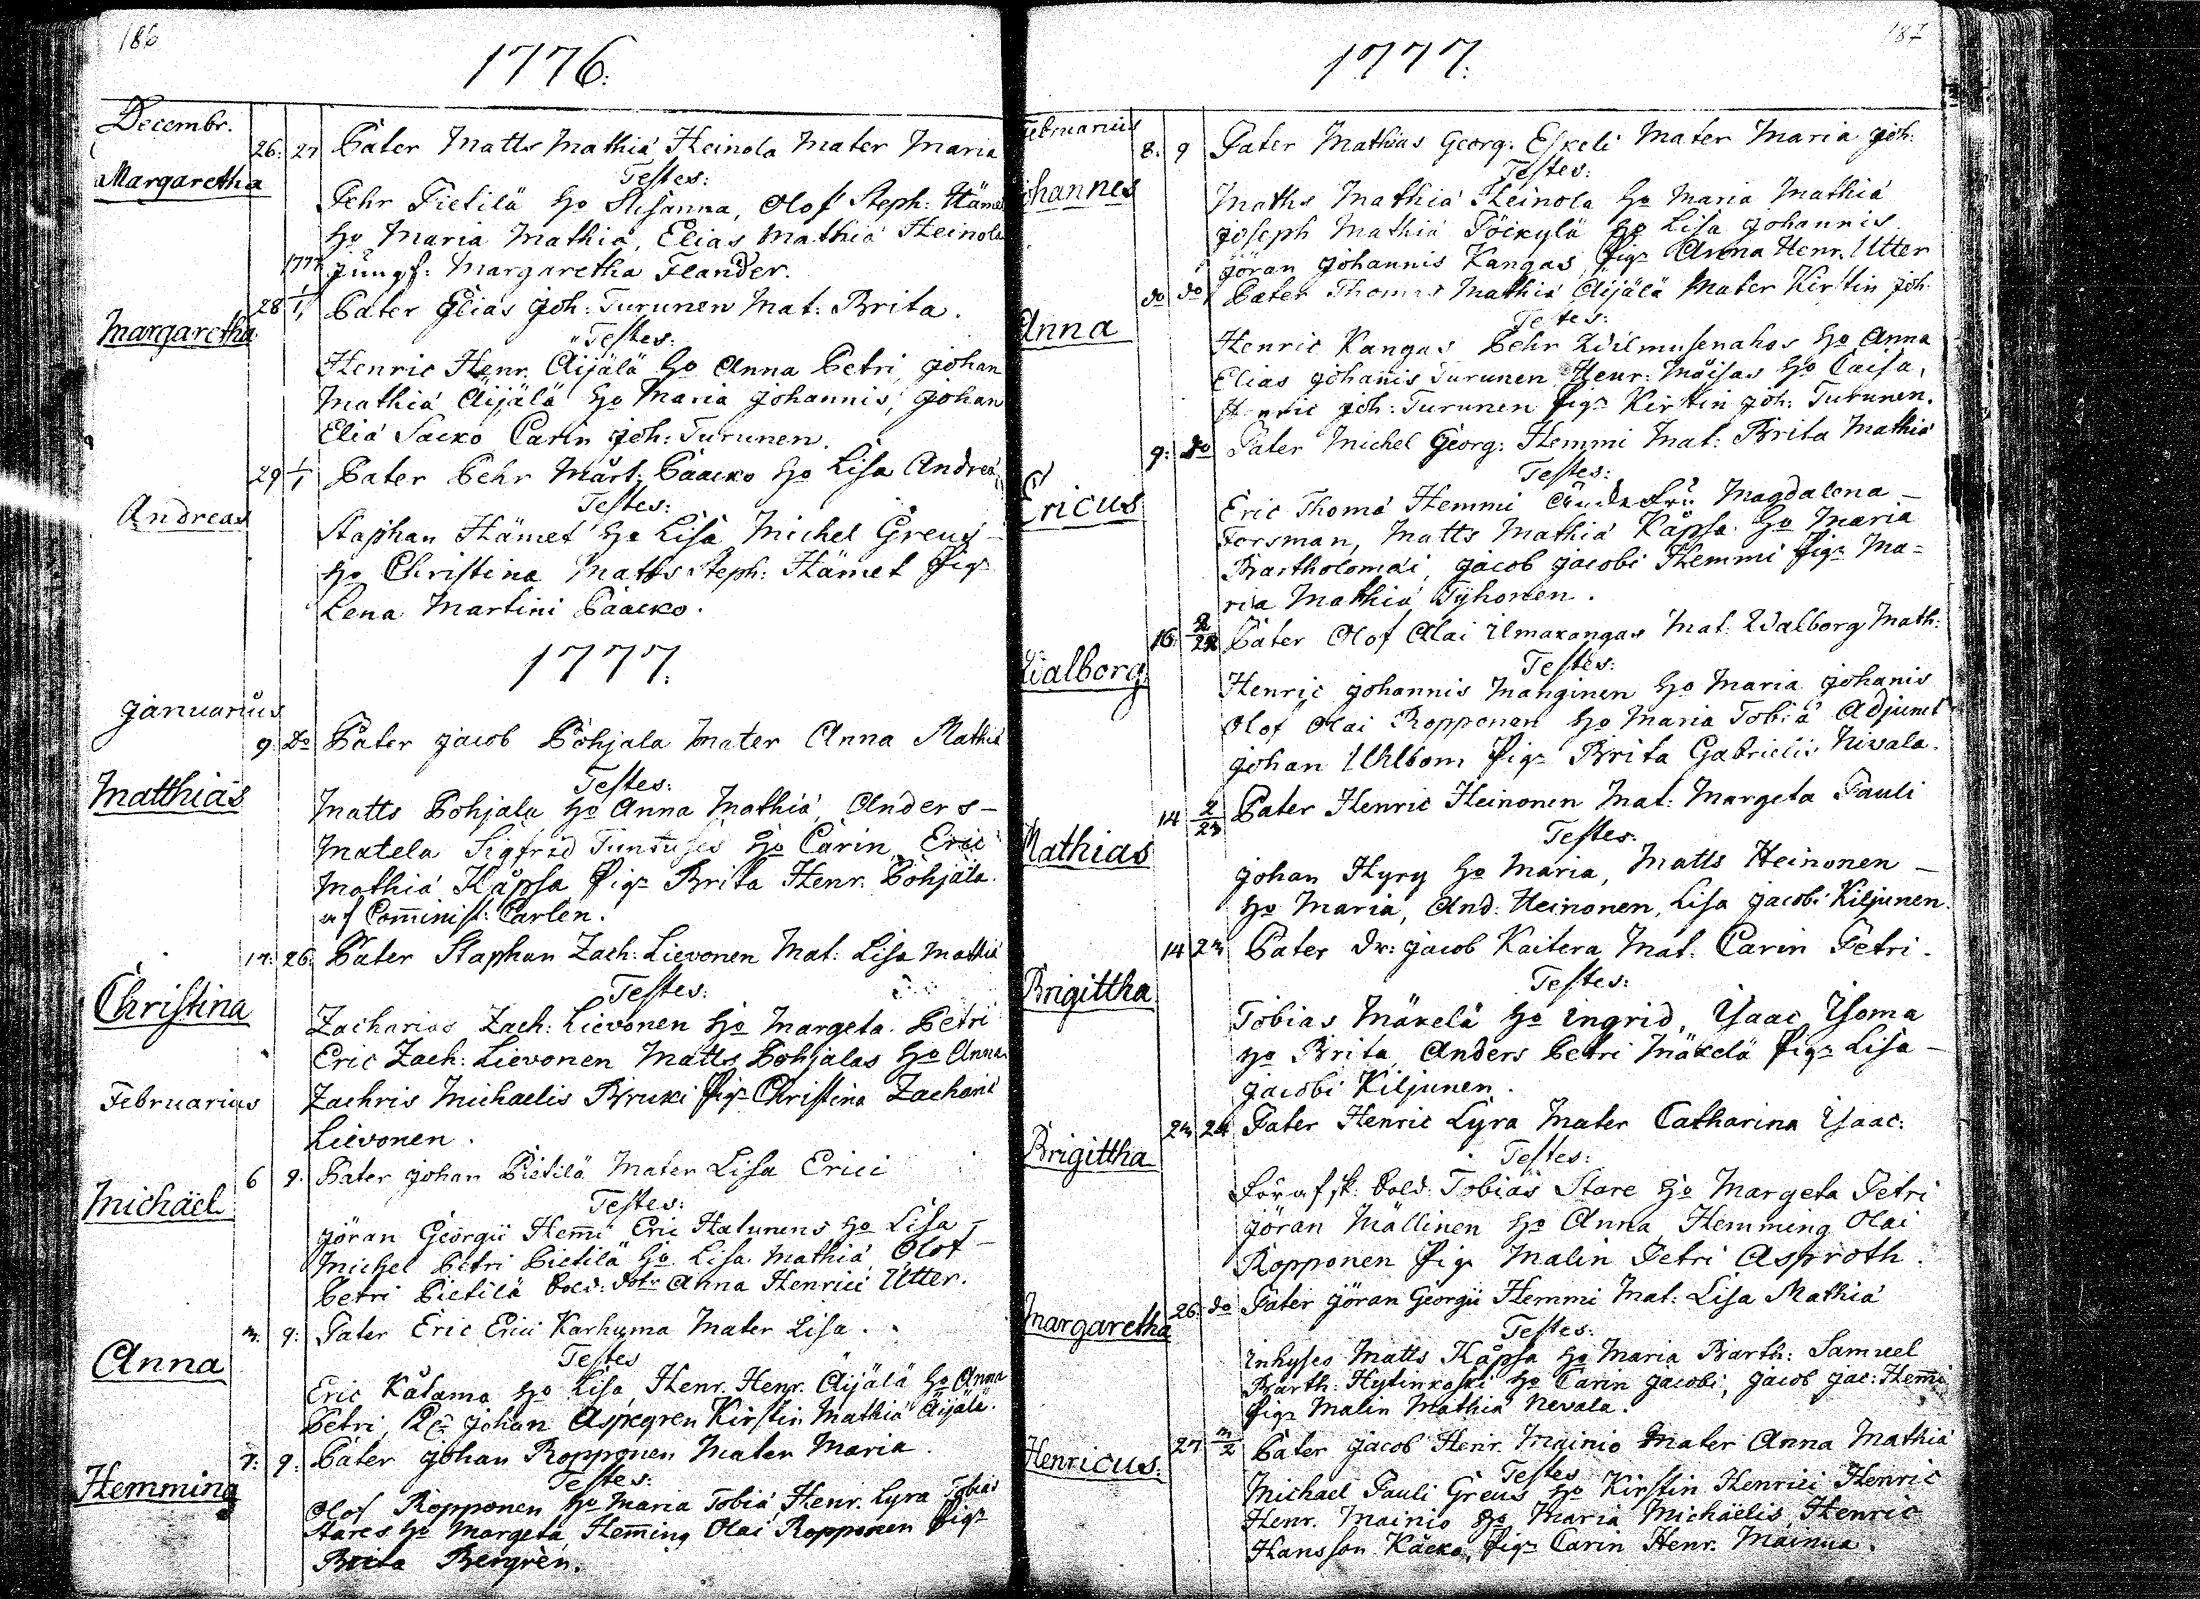 186
1776.
Decembr.
26. 27 Pater Matts Mathiæ Heinola Mater Maria
Margaretha
Testes:
Pehr Pietilä H:o Susanna, Olof Steph: Hämel
H:o Maria Mathiæ, Elias Mathiæ Heinola
1777 jungf: Margaretha Flander.
28 1/1 Pater Elias Joh: Turunen Mat: Brita.
Margaretha
Testes:
Henric Henr. Äijälä H:o Anna Petri, Johan
Mathiæ Äijälä H:o Maria Johannis, Johan
Eliæ Sacko Carin Joh: Turunen.
29 1/1 Pater Pehr Mårt: Påacko H:o Lisa Andreæ
Andreas
Testes:
Staphan Hämet H:o Lisa Michel Greus
H:o Christina Matts Steph: Hämet Pig:
Lena Martini Påacko.
1777.
Januarius
9 D:o Pater Jacob Pohjala Mater Anna Mathiæ
Matthias
Testes:
Matts Pohjala H:o Anna Mathiæ, Anders –
Matela Sigfrid H:o Carin, Eric
Mathiæ Kåpsa Pig: Brita Henr. Pohjala.
af Comminist: Carlen.
14. 26. Pater Staphan Zach: Lievonen Mat: Lisa Mathiæ
Christina
Testes:
Zacharias Zach: Lievonen H:o Margeta Petri
Eric Zach: Lievonen Matts Pohjalas H:o Anna
Februarius
Zachris Michaelis Bruki Pig: Christina Zachariæ
Lievonen.
6 9. Pater Johan Pietilä Mater Lisa Erici
Michäel
Testes:
Jöran Georgii Hemi Eric Halunens H:o Lisa –
Michel Petri Pietilä H:o Lisa Mathiæ, Olof –
Petri Pietilä Sold: dotr Anna Henrici Utter.
9: Pater Eric Erici Karhuma Mater Lisa.
Anna
Testes
Eric Kålama H:o Lisa, Henr. Henr. Äijälä H:o Anna
Petri, Johan Aspegren Kirstin Mathiæ Äijälä.
7: 9: Pater Johan Ropponen Mater Maria.
Hemming
Testes:
Olof Ropponen H:o Maria Tobiæ, Henr. Lyra Tobias
Stares H:o Margeta, Heming Olai Ropponen Pig:
Brita Bergrèn.
187
1777.
Februarius
8. 9 Pater Mathias Georg: Eskeli Mater Maria Joh:
Johannes
Testes:
Maths Mathiæ Heinola H:o Maria Mathiæ
Joseph Mathiæ Pöickylä H:o Lisa Johannis
Jöran Johannis Kangas, Pig: Anna Henr. Utter
d:o d:o Pater Thomas Mathiæ Äijälä Mater Kirstin Joh:
Anna
Testes:
Henric Kangas Pehr Wilmusenahos H:o Anna
Elias Johanis Turunen Henr: Moisas H:o Caisa,
Henric Joh: Turunen Pig: Kirstin Joh: Turunen.
9: D:o Pater Michel Georg: Hemmi Mat: Brita Mathiæ
Ericus
Testes:
Eric Thomæ Hemmi Magdalena –
Forsman, Matts Mathiæ Kåpsa H:o Maria
Bartholomäi, Jacob Jacobi Hemmi Pig: Ma=
ria Mathiæ Tyhonen.
16. Pater Olof Olai Ilmakangas Mat: Walborg Math:
Walborg
Testes:
Henric Johannis Manginen H:o Maria Johanis
Olof Olai Ropponen H:o Maria Tobiæ Adjunct
Johan Uhlbom Pig: Brita Gabrielis Nivala.
14 2/23 Pater Henric Heinonen Mat: Margeta Pauli
Mathias
Testes:
Johan Hyry H:o Maria, Matts Heinonen –
H:o Maria, And: Heinonen, Lisa Jacobi Kiljunen.
14 23 Pater Dr: Jacob Kaitera Mat: Carin Petri.
Brigittha
Testes:
Tobias Mäkelä H:o Ingrid, Isaac Isoma
H:o Brita, Anders Petri Mäkelä Pig: Lisa –
Jacobi Kiljunen.
23 24 Pater Henric Lyra Mater Catharina Isaac:
Brigittha
Testes:
Förafsk: Sold: Tobias Stare H:o Margeta Petri
Jöran Mällinen H:o Anna, Hemming Olai
Ropponen Pig: Malin Petri Asproth.
26. d:o Pater Jöran Georgii Hemmi Mat: Lisa Mathiæ
Margaretha
Testes:
Inhyses Matts Kåpsa H:o Maria Barth: Samuel
Barth: Hytinkoski H:o Carin Jacobi, Jacob Jac: Hemi
Pig: Malin Mathiæ Nevala.
27 Pater Jacob Henr. Mainio Mater Anna Mathiæ
Henricus:
Testes
Michael Pauli Greus H:o Kirstin Henrici Henric
Henr. Mainio H:o Maria Michäelis, Henric
Hansson Käcko, Pig: Carin Henr. Mainua.